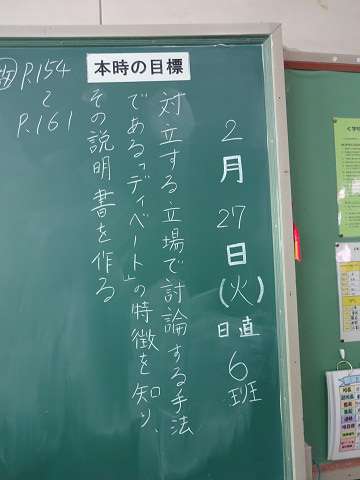 2月27日(火)
日直 6班
本時の目標
対立する立場で討論する手法
である「ディベート」の特徴を知り、
その説明書を作る
P.154
〜
P.161